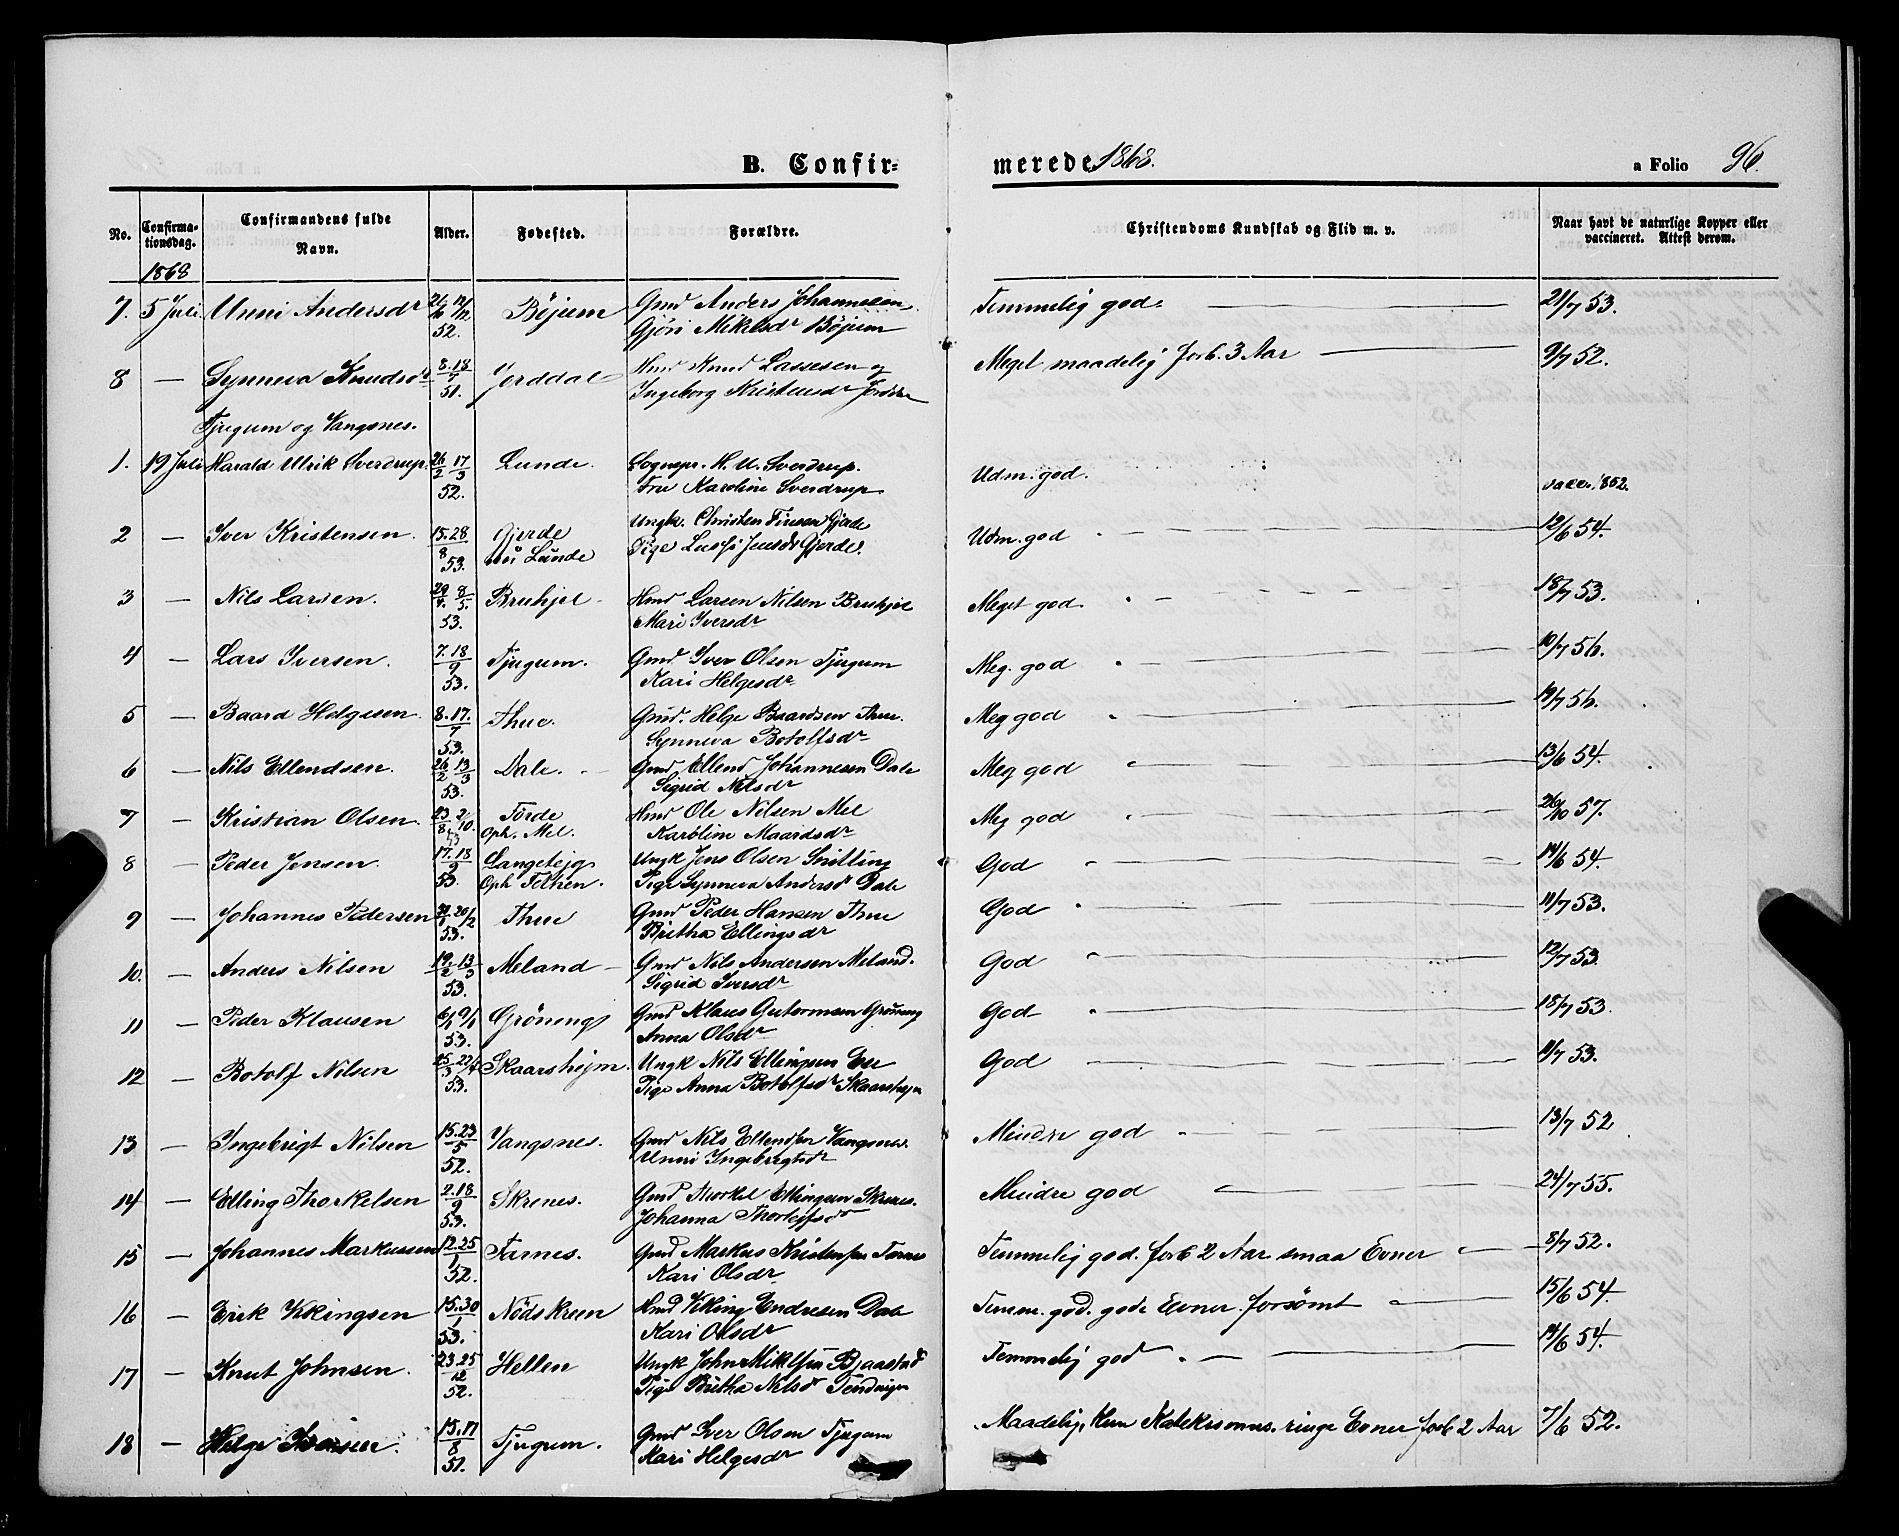 B. Confir-
merede 1868.
a Folio 96.
No.
Confirma-
tionsdag.
Confirmandens fulde
Navn.
Alder.
Fødested.
Forældre.
Christendoms Kundskab og Flid m. v.
Naar havt de naturlige Kopper eller
vaccineret. Attest derom.
1868
7. 5 Juli Unni Andersdr 52. Böjum Gmd Anders Johannesen Temmelig god. 21/7 53.
Gjöri Mikelsdr Böjum
8 — Synneva Knudsdr 8.18/7 51. Jorddal Hmd Knud Lassesen og Meget maadelig forb. 3 Aar 9/7 52.
Ingeborg Kristensdr
Tjugum og Vangsnes.
1. 19 Juli Harald Ulrik Sverdrup 26/2 17/3 52. Lunde. Sognepr. H. U. Sverdrup. Udm. god. vacc. 1852.
Fru Karoline Sverdrup
2 — Iver Kristensen. 15.28/8 53. Gjerde Ungk. Christen Finsen Gjerde Udm. god 12/6 54.
nu Lunde Pige Jensdr Gjerde.
3 — Nils Larsen. 29/4 8/5 53. Bruhjel Hmd Larsen Nilsen Bruhjel Meget god. 18/7 53.
Mari Iversdr
4 — Lars Iversen. 7.18/9 53. Tjugum. Gmd Iver Olsen Tjugum Meg. god 10/7 56.
Kari Helgesdr
5 — Baard Helgesen 8.17./7 53. Thue. Gmd. Helge Baardsen Thue. Meg god 19/7 56.
Synneva Botolfsdr
6 — Nils Ellendsen. 26/2 13/3 53. Dale. Gmd Ellend Johannesen Dale Meg god 13/6 54.
Sigrid Nilsdr
7 — Kristian Olsen. 23/8 2/10. 53 Förde Hmd Ole Nilsen Mel Meg god 26/10 57.
Oph. Mel. Karoline Maardsdr
8 — Peder Jensen. 17.18/9 53. Langetejg Ungk Jens Olsen Snilling God 14/6 54.
Oph Fethen. Pige Synneva Andersdr Dale
9 — Johannes Pedersen 20/2 53. Thue Gmd Peder Hansen Thue God 11/7 53.
Britha Ellingsdr
10. — Anders Nilsen 19/2 13/3 53. Meland Gmd Nils Andersen Meland. God 12/7 53.
Sigrid Iversdr
11 — Peder Klausen 6/1 9/1 53. Gröning Gmd Klaus Guttormsen Gröning God 18/7 53.
Anna Olsdr
12 — Botolf Nilsen 53. Skaarshejm. Ungk Nils Ellingsen Ese God 11/7 53.
Pige Anna Botolfsdr Skaarshejm
13 — Ingebrigt Nilsen 15.23/5 52. Vangsnes. Gmd Nils Ellendsen Vangsnes. Mindre god 13/7 52
Unni Ingebrigtsdr
14 — Elling Thorkelsen 2.18/9 53. Skrenes. Gmd Thorkel Ellingsen Skrenes. Mindre god 24/7 55.
Johanna Thorlejfsdr
15 — Johannes Markussen 12.25/1 52. Farnes. Gmd Markus Kristensen Farnes Temmelig god. forb 2 Aar smaa Evner 8/7 52.
Kari Olsdr
16 — Erik Vikingsen 15.30/1 53. Nödskreen Hmd Viking Endresen Dale Temm. god. gode Evner. forsömt 15/6 54.
Kari Olsdr
17 — Knut Johnsen. 23.25/12 52. Hellen Ungk John Mikelsen Bjaastad Temmelig god 14/6 54.
Pige Britha Nilsdr
18 — Helge Iversen. 15.17/8 51. Tjugum. Gmd Iver Olsen Tjugum Maadelig, kun Katekismus. ringe Evner forb 2 Aar 7/6 52.
Kari Helgesdr